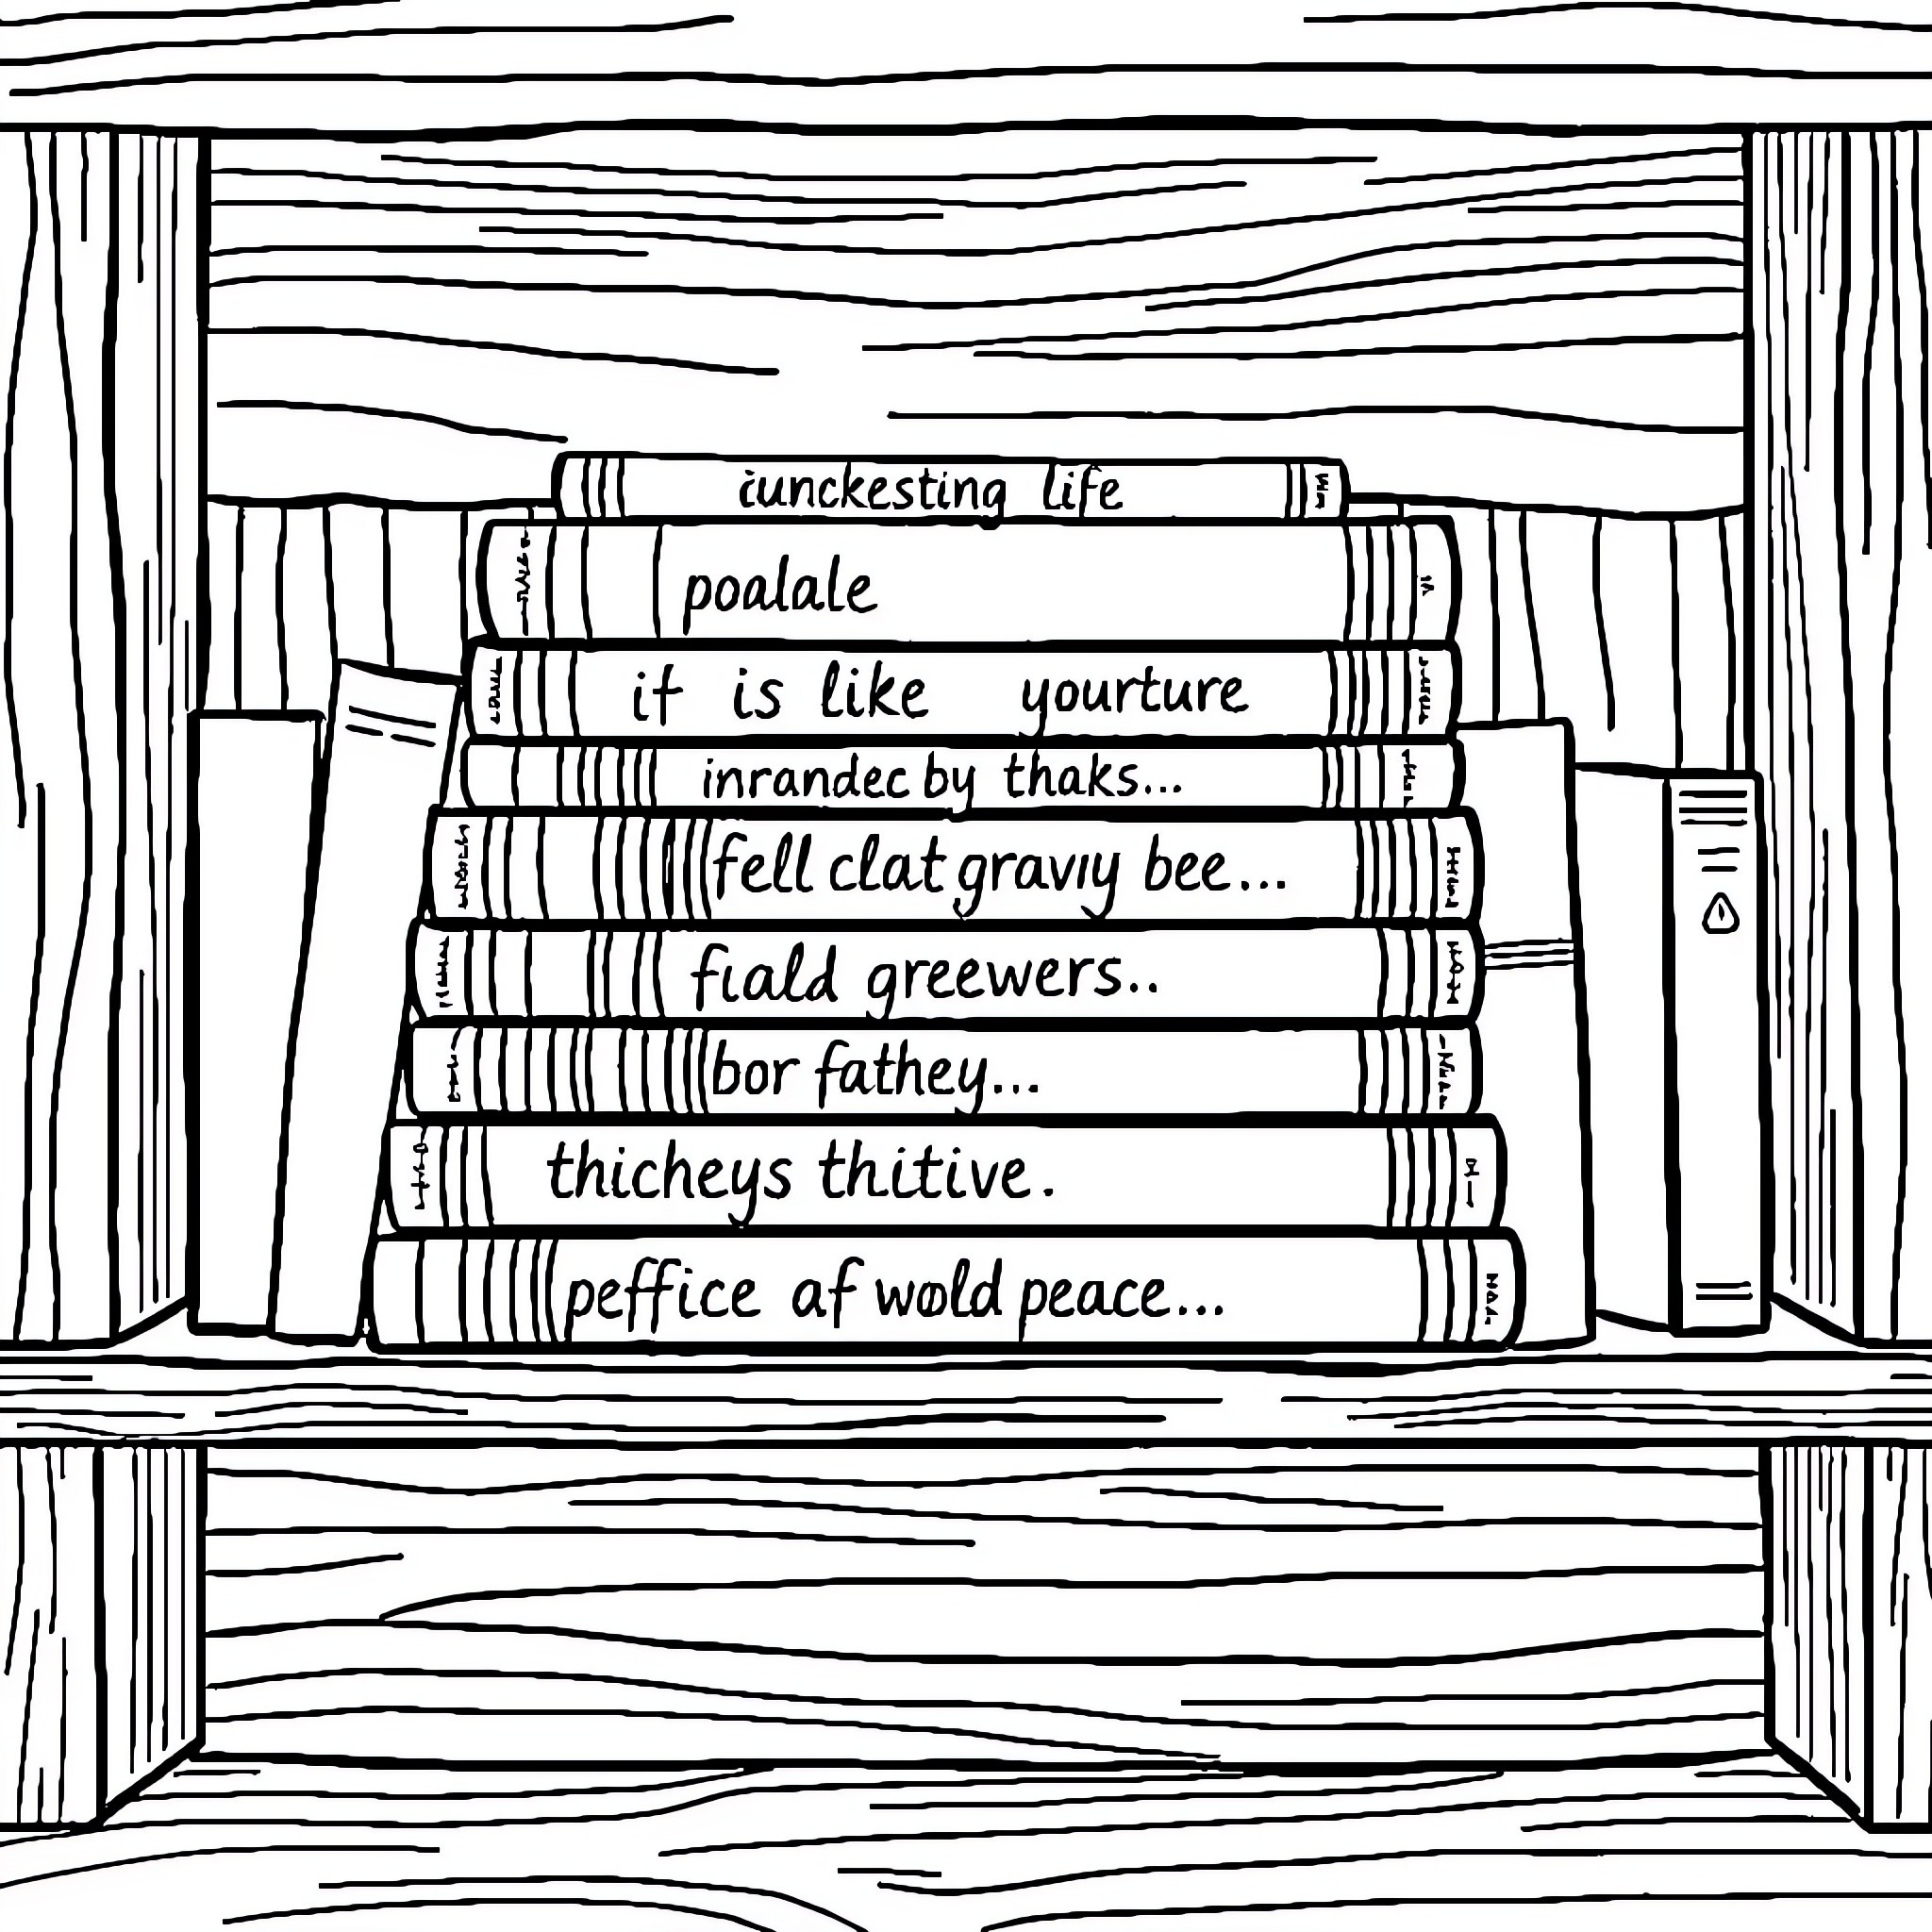 iunckesting life
poalale
if is like yourture
inrandec by thaks...
fell clat graviy bee...
fiald greewers..
bor fathey...
thicheys thitive.
peffice af wold peace...